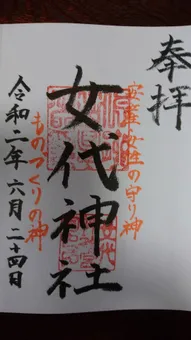 奉拝
安産女性の守り神
女代神社
ものづくりの神
令和二年六月二十四日